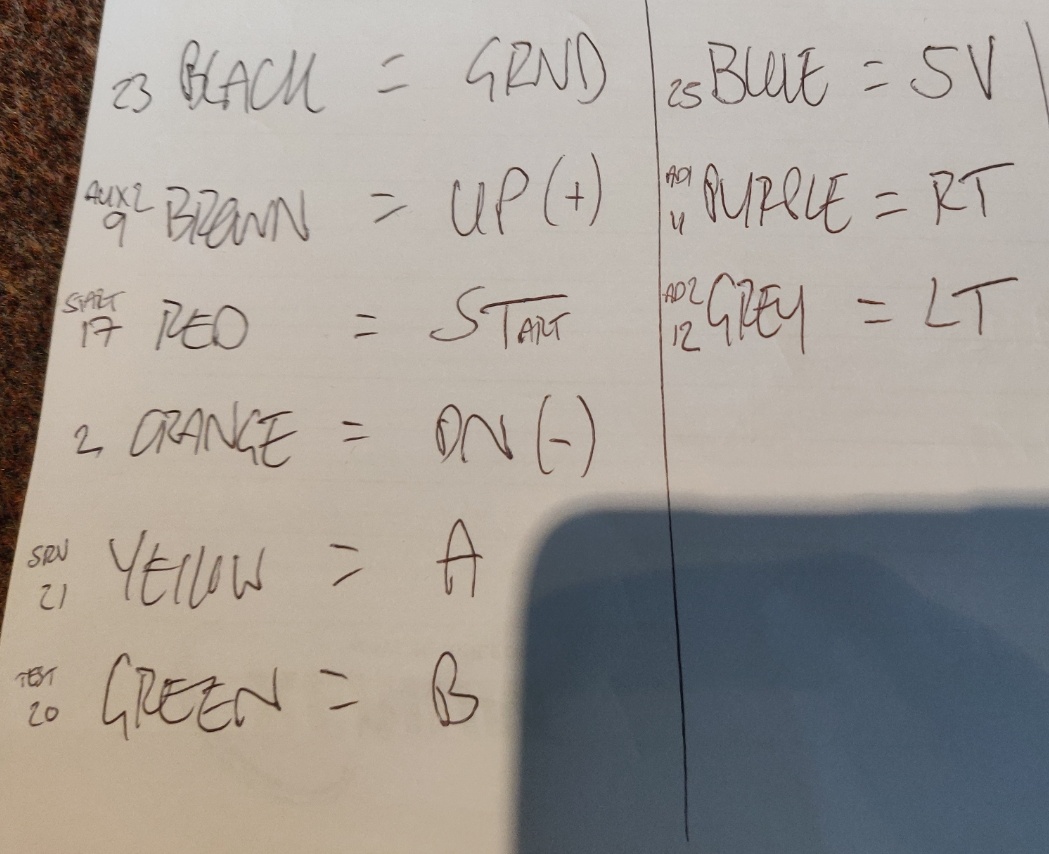 23 BLACK = GRND
AUX2
9 BROWN = UP (+)
START
17 RED = START
2 ORANGE = DN (-)
SRV
21 YELLOW = A
TEST
20 GREEN = B
25 BLUE = 5V
AD1
11 PURPLE = RT
AD2
12 GREY = LT